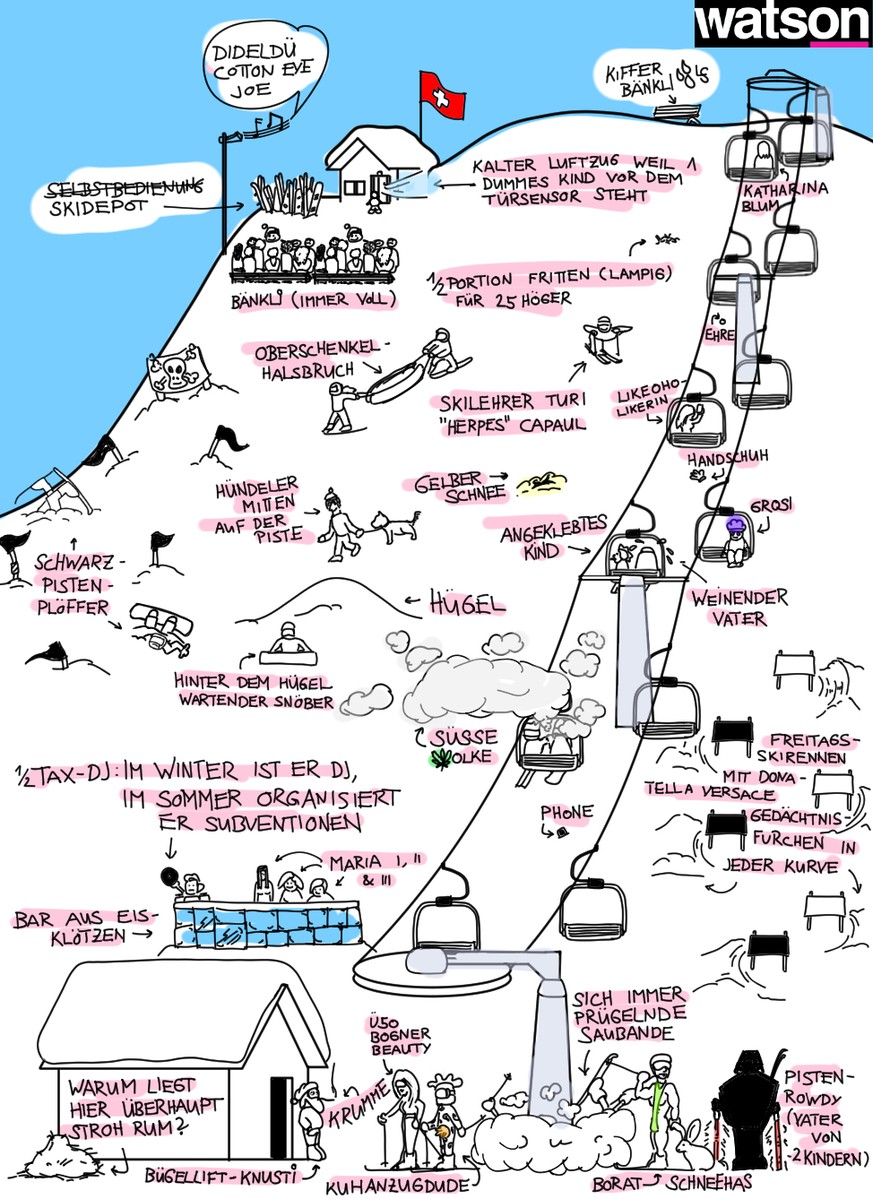 watson
DIDELDÜ
COTTON EYE
JOE
KIFFER
BÄNKLI
SELBSTBEDIENUNG
SKIDEPOT
KALTER LUFTZUG WEIL 1
DUMMES KIND VOR DEM
TÜRSENSOR STEHT
KATHARINA
BLUM
BÄNKLI (IMMER VOLL)
1/2 PORTION FRITTEN (LAMPIG)
FÜR 25 HÖGER
EHRE
OBERSCHENKEL-
HALSBRUCH
SKILEHRER TURI
"HERPES" CAPAUL
LIKEOHO-
LIKERIN
HANDSCHUH
HÜNDELER
MITTEN
AUF DER
PISTE
GELBER
SCHNEE
GROSI
ANGEKLEBTES
KIND
SCHWARZ-
PISTEN-
PLÖFFER
WEINENDER
VATER
HÜGEL
HINTER DEM HÜGEL
WARTENDER SNÖBER
SÜSSE
WOLKE
FREITAGS-
SKIRENNEN
MIT DONA-
TELLA VERSACE
GEDÄCHTNIS-
FURCHEN IN
JEDER KURVE
1/2 TAX-DJ: IM WINTER IST ER DJ,
IM SOMMER ORGANISIERT
ER SUBVENTIONEN
PHONE
MARIA I, II
& III
BAR AUS EIS-
KLÖTZEN
SICH IMMER
PRÜGELNDE
SAUBANDE
Ü50
BOGNER
BEAUTY
WARUM LIEGT
HIER ÜBERHAUPT
STROH RUM?
KRUMME
PISTEN-
ROWDY
(VATER
VON
2 KINDERN)
BÜGELLIFT-KNUSTI
KUHANZUGDUDE
BORAT
SCHNEEHAS